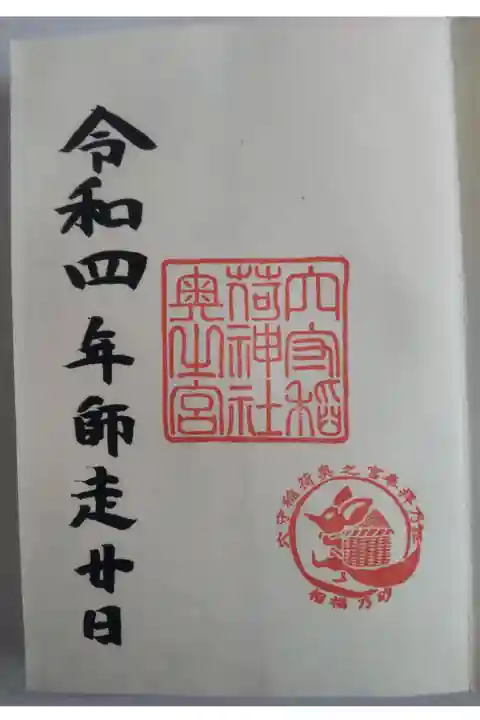 穴守稲
荷神社
奥之宮
穴守稲荷奥之宮参拝乃証
招福乃砂
令和四年師走廿日